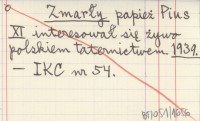 Zmarły papież Pius
XI interesował się żywo
polskiem taternictwem. 1939.
— IKC nr 54.